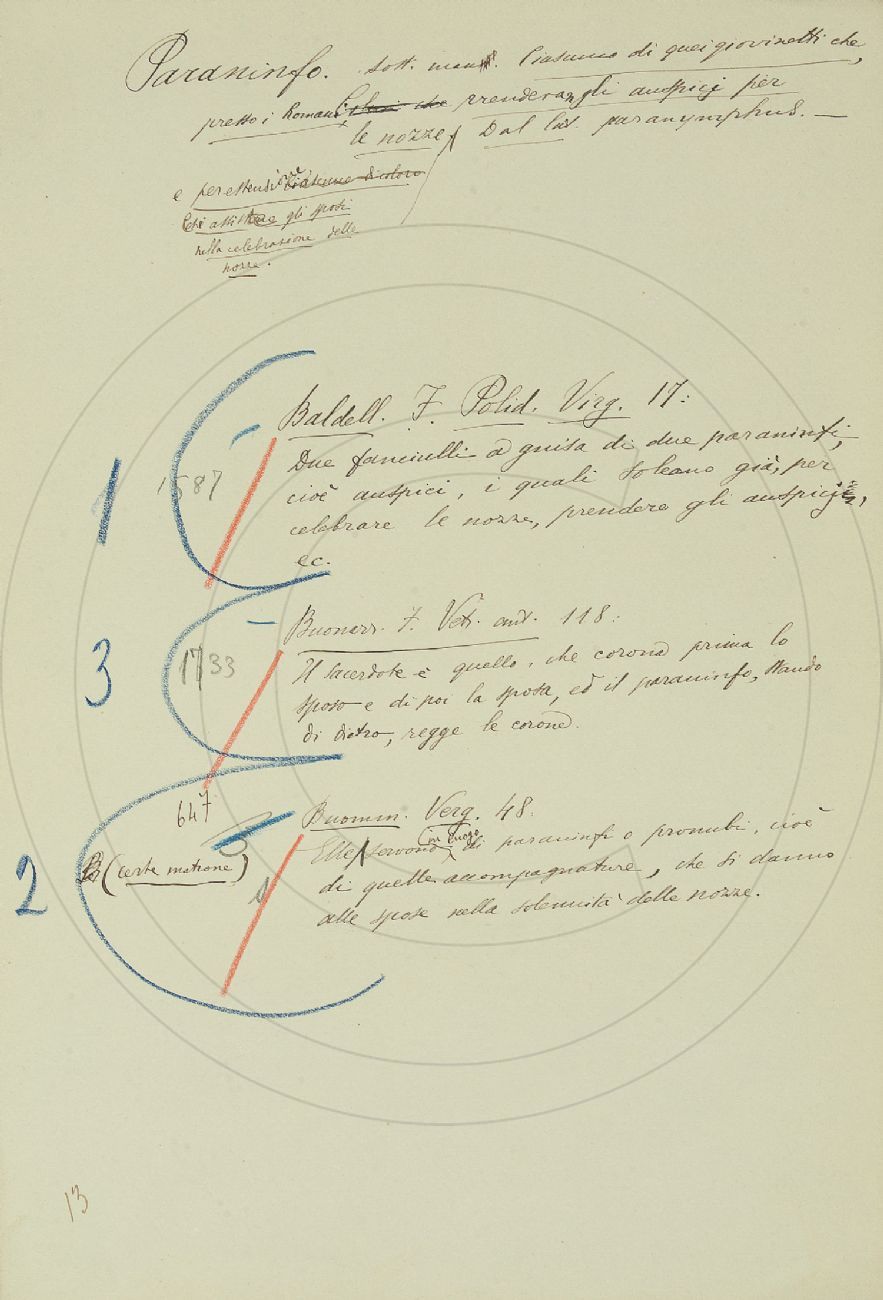 Paraninfo. Sost. masc. Ciascuno di quei giovinetti che,
presso i Romani, prendevan gli auspicj per
le nozze, Dal lat. paranymphus. —
e per estens.
Chi assiste gli sposi
nella celebrazione delle
nozze.
Baldell. F. Polid. Virg. 17:
Due fanciulli a guisa di due paraninfi,
1 1587
cioè auspici, i quali soleano già, per
celebrare le nozze, prendere gli auspicj,
ec.
Buonarr. F. Vetr. ant. 118:
3 1733
Il sacerdote è quello, che corona prima lo
sposo e di poi la sposa, ed il paraninfo, stando
di dietro, regge le corone.
647
Buomm. Verg. 48:
Elle servono in luogo di paraninfi o pronubi, cioè
2 (certe matrone)
di quelle accompagnature, che si danno
alle spose nella solennità delle nozze.
13